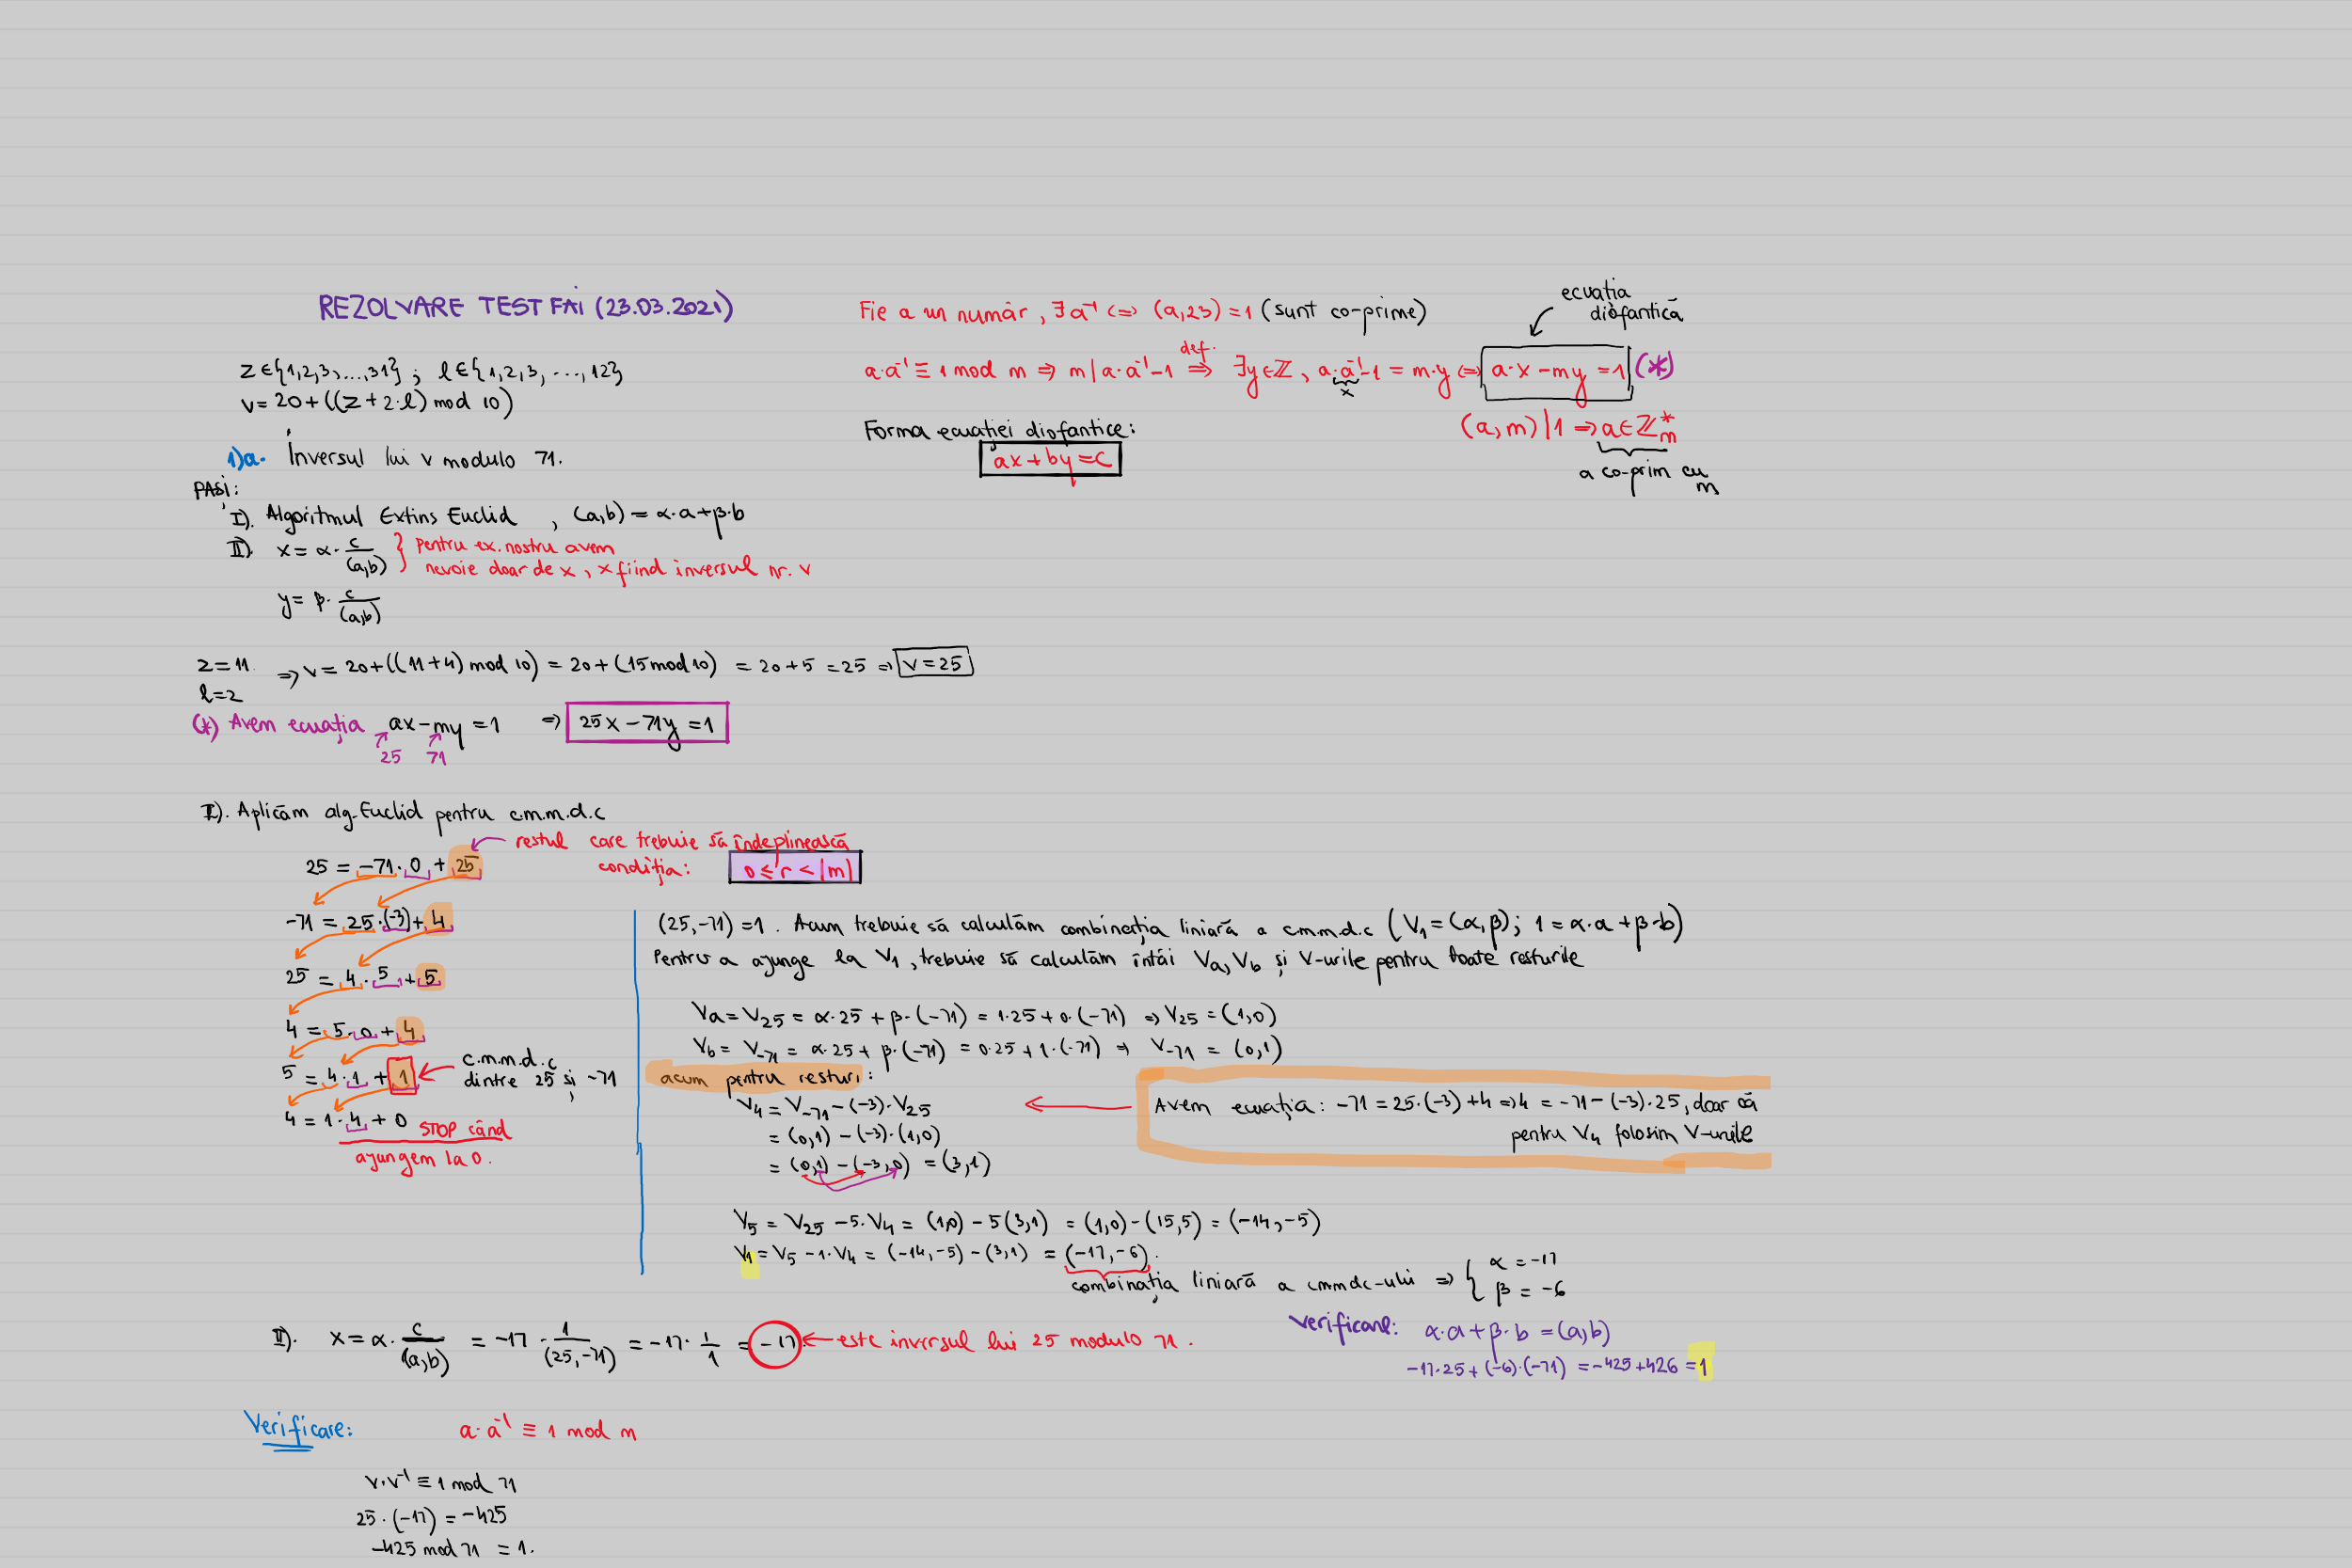 REZOLVARE TEST FAI (23.03.2021)
z∈{1,2,3,...,31} ; l∈{1,2,3,...,12}
v = 20+((z+2·l) mod 10)
1)a. Inversul lui v modulo 71.
PAȘI:
I). Algoritmul Extins Euclid , (a,b) = α·a+β·b
II). x = α· c/(a,b) } pentru ex. nostru avem
nevoie doar de x, x fiind inversul nr. v
y = β· c/(a,b)
Fie a un număr, ∃ a⁻¹ <=> (a,23) = 1 (sunt co-prime)
ecuația
diofantică
a·a⁻¹ ≡ 1 mod m => m | a·a⁻¹-1 def. => ∃y∈ℤ, a·a⁻¹-1 = m·y <=> a·x - my = 1 (*)
x
(a,m) | 1 => a∈ℤ*m
a co-prim cu
m
Forma ecuației diofantice:
ax + by = c
z=11
l=2
=> v = 20+((11+4) mod 10) = 20+(15 mod 10) = 20+5 = 25 => v=25
(*) Avem ecuația ax - my = 1 => 25x - 71y = 1
25 71
I). Aplicăm alg. Euclid pentru c.m.m.d.c
restul care trebuie să îndeplinească
condiția: 0 ≤ r < |m|
25 = -71·0 + 25
-71 = 25·(-3) + 4
25 = 4·5 + 5
4 = 5·0 + 4
5 = 4·1 + 1
c.m.m.d.c
dintre 25 și -71
4 = 1·4 + 0
STOP când
ajungem la 0.
(25,-71) = 1. Acum trebuie să calculăm combinația liniară a c.m.m.d.c (V₁ = (α,β); 1 = α·a + β·b)
Pentru a ajunge la V₁, trebuie să calculăm întâi Va, Vb și V-urile pentru toate resturile
Va = V₂₅ = α·25 + β·(-71) = 1·25 + 0·(-71) => V₂₅ = (1,0)
Vb = V₋₇₁ = α·25 + β·(-71) = 0·25 + 1·(-71) => V₋₇₁ = (0,1)
acum pentru resturi:
V₄ = V₋₇₁ - (-3)·V₂₅
= (0,1) - (-3)·(1,0)
= (0,1) - (-3,0) = (3,1)
Avem ecuația: -71 = 25·(-3) + 4 => 4 = -71 - (-3)·25, doar că
pentru V₄ folosim V-urile
V₅ = V₂₅ - 5·V₄ = (1,0) - 5(3,1) = (1,0) - (15,5) = (-14,-5)
V₁ = V₅ - 1·V₄ = (-14,-5) - (3,1) = (-17,-6).
combinația liniară a cmmdc-ului => { α = -17
β = -6
Verificare: α·a + β·b = (a,b)
-17·25 + (-6)·(-71) = -425 + 426 = 1
II). x = α· c/(a,b) = -17 · 1/(25,-71) = -17· 1/1 = -17 ← este inversul lui 25 modulo 71.
Verificare: a·a⁻¹ ≡ 1 mod m
v·v⁻¹ ≡ 1 mod 71
25·(-17) = -425
-425 mod 71 = 1.